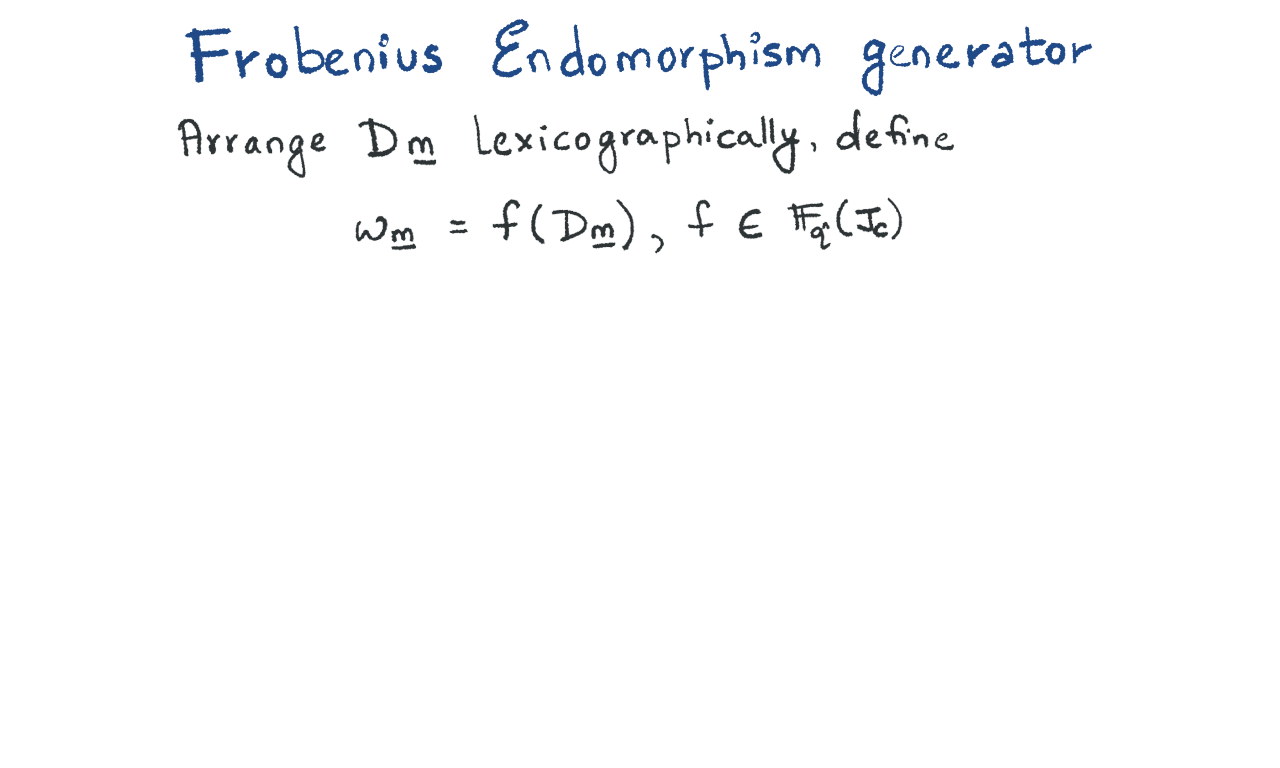 Frobenius Endomorphism generator
Arrange D_m̲ Lexicographically, define
ω_m̲ = f(D_m̲), f ∈ 𝔽_q(J_C)